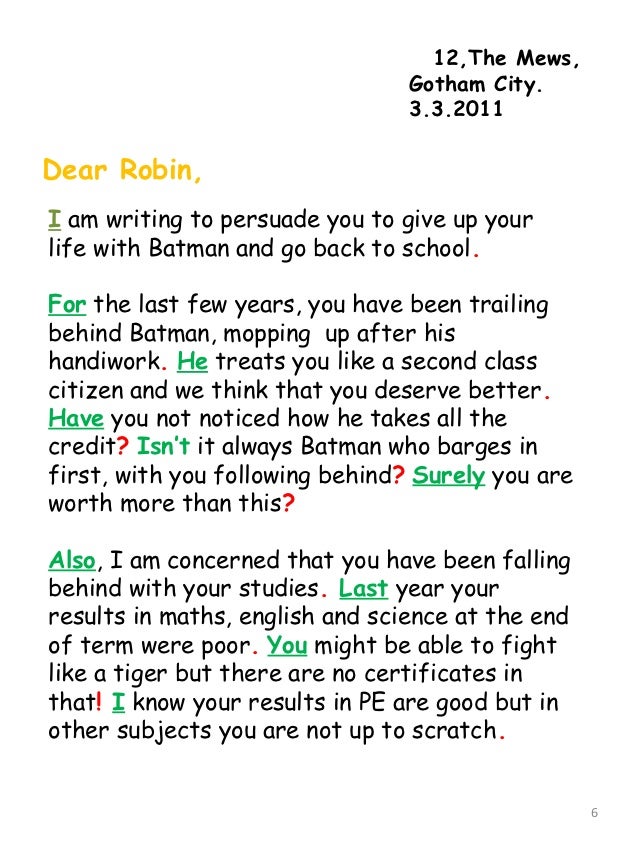 12,The Mews,
Gotham City.
3.3.2011
Dear Robin,
I am writing to persuade you to give up your
life with Batman and go back to school.
For the last few years, you have been trailing
behind Batman, mopping  up after his
handiwork. He treats you like a second class
citizen and we think that you deserve better.
Have you not noticed how he takes all the
credit? Isn't it always Batman who barges in
first, with you following behind? Surely you are
worth more than this?
Also, I am concerned that you have been falling
behind with your studies. Last year your
results in maths, english and science at the end
of term were poor. You might be able to fight
like a tiger but there are no certificates in
that! I know your results in PE are good but in
other subjects you are not up to scratch.
6